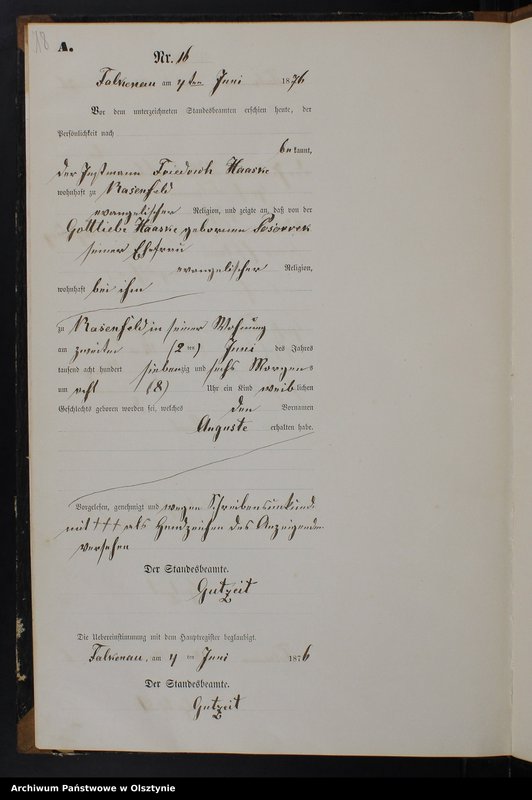 18
A.
Nr. 16
Falkenau am 4ten Juni 1876
Vor dem unterzeichneten Standesbeamten erschien heute, der
Persönlichkeit nach
bekannt,
der Instmann Friedrich Haaske
wohnhaft zu Rasenfeld
evangelischer Religion, und zeigte an, daß von der
Gottliebe Haaske geborenen
seiner Ehefrau
evangelischer Religion,
wohnhaft bei ihm
zu Rasenfeld, in seiner Wohnung
am zweiten (2 ten) Juni des Jahres
tausend acht hundert siebenzig und sechs Morgens
um acht (8) Uhr ein Kind weiblichen
Geschlechts geboren worden sei, welches den Vornamen
Auguste erhalten habe.
Vorgelesen, genehmigt und wegen Schreibensunkunde
mit +++ als Handzeichen des Anzeigenden
versehen
Der Standesbeamte.
Gutzeit
Die Uebereinstimmung mit dem Hauptregister beglaubigt.
Falkenau, am 4 ten Juni 1876
Der Standesbeamte.
Gutzeit
Archiwum Państwowe w Olsztynie